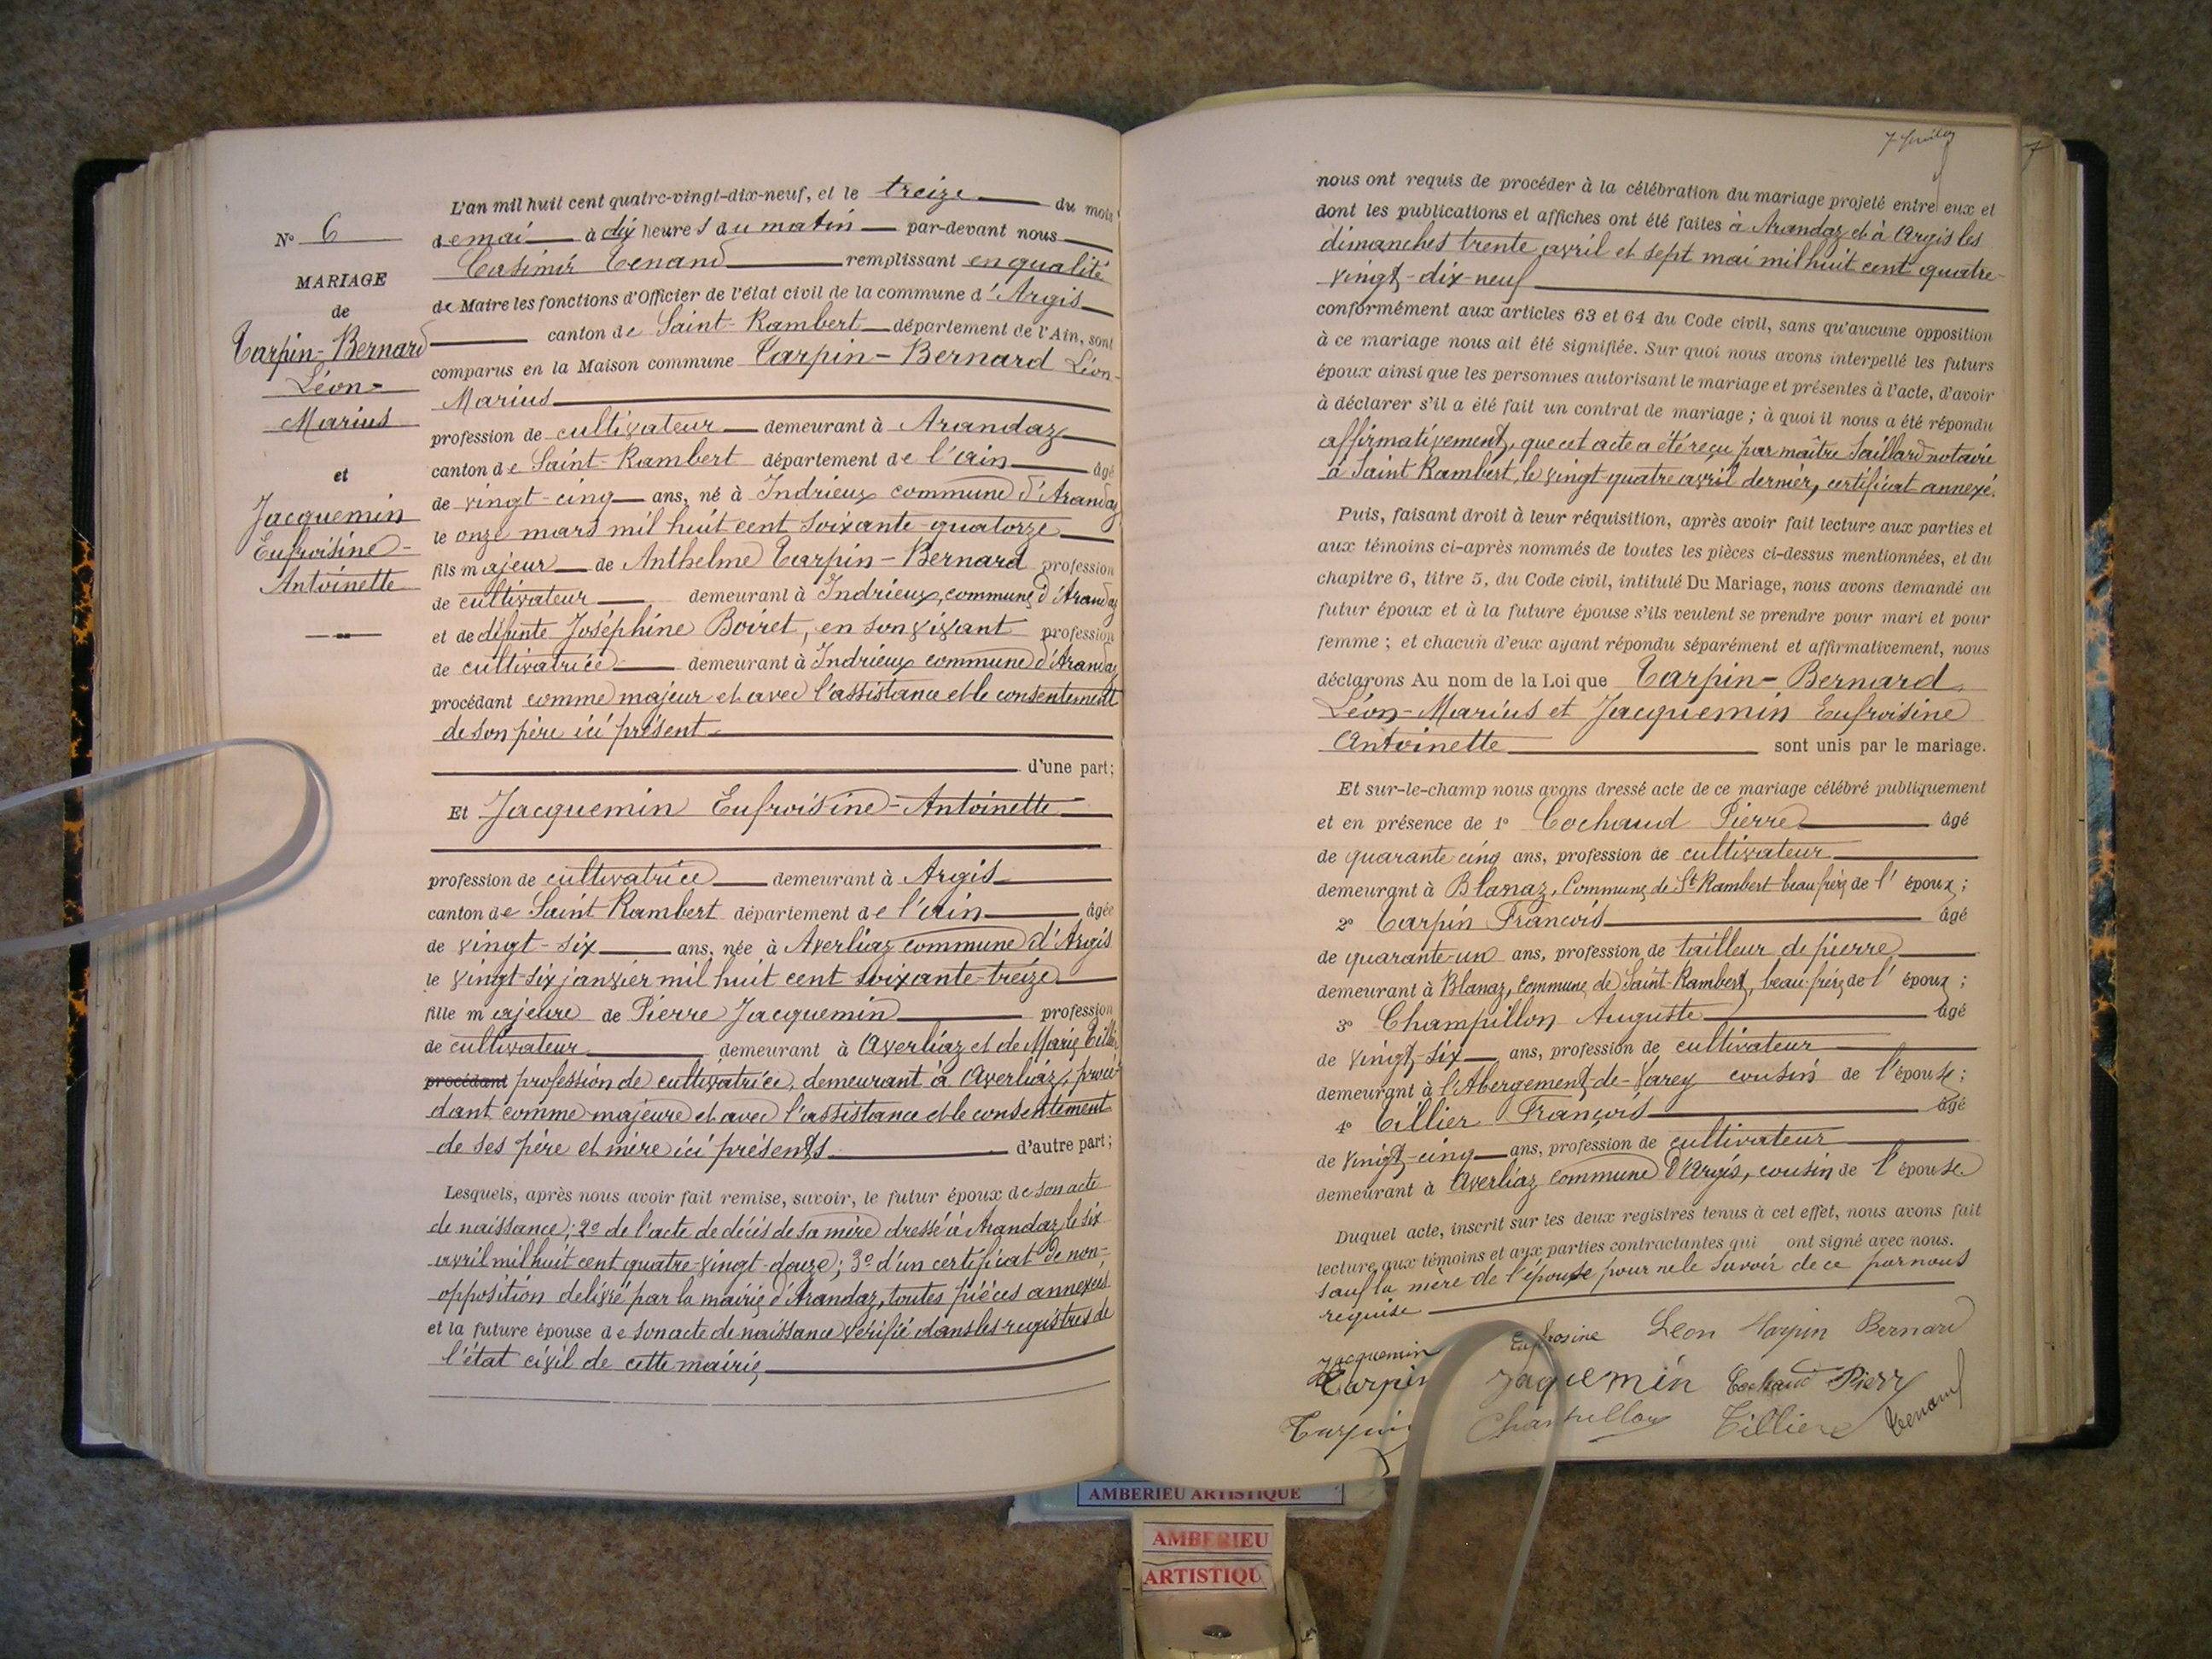 L'an mil huit cent quatre-vingt-dix-neuf, et le treize du mois
N° 6
de mai à dix heures du matin par-devant nous
Casimir Tenand remplissant en qualité
MARIAGE
de Maire les fonctions d'Officier de l'état civil de la commune d'Argis
de
canton de Saint-Rambert département de l'Ain, sont
Tarpin-Bernard
comparus en la Maison commune Tarpin-Bernard Léon-
Léon-
Marius
Marius
profession de cultivateur demeurant à Arandaz
canton de Saint-Rambert département de l'ain âgé
et
de vingt-cinq ans, né à Indrieux commune d'Arandaz
Jacquemin
le onze mars mil huit cent soixante-quatorze
Eufroisine-
fils majeur de Anthelme Tarpin-Bernard profession
Antoinette
de cultivateur demeurant à Indrieux, commune d'Arandaz
et de défunte Joséphine Boiret, en son vivant profession
de cultivatrice demeurant à Indrieux commune d'Arandaz
procédant comme majeur et avec l'assistance et le consentement
de son père ici présent
d'une part;
Et Jacquemin Eufroisine-Antoinette
profession de cultivatrice demeurant à Argis
canton de Saint Rambert département de l'ain âgée
de vingt-six ans, née à Averliaz commune d'Argis
le vingt-six janvier mil huit cent soixante-treize
fille majeure de Pierre Jacquemin profession
de cultivateur demeurant à Averliaz et de Marie
procédant profession de cultivatrice, demeurant à Averliaz, procé-
dant comme majeure et avec l'assistance et le consentement
de ses père et mère ici présents d'autre part;
Lesquels, après nous avoir fait remise, savoir, le futur époux de son acte
de naissance; 2° de l'acte de décès de sa mère dressé à Arandaz le six
avril mil huit cent quatre-vingt-douze; 3° d'un certificat de non-
opposition delivré par la mairie d'Arandaz, toutes pièces annexées
et la future épouse de son acte de naissance vérifié dans les registres de
l'état civil de cette mairie,
7
nous ont requis de procéder à la célébration du mariage projeté entre eux et
dont les publications et affiches ont été faites à Arandaz et à Argis les
dimanches trente avril et sept mai mil huit cent quatre-
vingt-dix-neuf
conformément aux articles 63 et 64 du Code civil, sans qu'aucune opposition
à ce mariage nous ait été signifiée. Sur quoi nous avons interpellé les futurs
époux ainsi que les personnes autorisant le mariage et présentes à l'acte, d'avoir
à déclarer s'il a été fait un contrat de mariage; à quoi il nous a été répondu
affirmativement, que cet acte a été reçu par maître Saillard notaire
à Saint Rambert, le vingt-quatre avril dernier, certificat annexé.
Puis, faisant droit à leur réquisition, après avoir fait lecture aux parties et
aux témoins ci-après nommés de toutes les pièces ci-dessus mentionnées, et du
chapitre 6, titre 5, du Code civil, intitulé Du Mariage, nous avons demandé au
futur époux et à la future épouse s'ils veulent se prendre pour mari et pour
femme; et chacun d'eux ayant répondu séparément et affirmativement, nous
déclarons Au nom de la Loi que Tarpin-Bernard
Léon-Marius et Jacquemin Eufroisine
Antoinette sont unis par le mariage.
Et sur-le-champ nous avons dressé acte de ce mariage célébré publiquement
et en présence de 1° Cochaud Pierre âgé
de quarante cinq ans, profession de cultivateur
demeurant à Blanaz, Commune de St Rambert beau frère de l'époux;
2° Tarpin Francois âgé
de quarante-un ans, profession de tailleur de pierre,
demeurant à Blanaz, commune de Saint-Rambert, beau frère de l'époux;
3° Champillon Auguste âgé
de vingt-six ans, profession de cultivateur
demeurant à l'Abergement-de-Varey cousin de l'épouse;
4° Tillier François âgé
de vingt-cinq ans, profession de cultivateur
demeurant à Averliaz commune d'Argis, cousin de l'épouse
Duquel acte, inscrit sur les deux registres tenus à cet effet, nous avons fait
lecture aux témoins et aux parties contractantes qui ont signé avec nous.
sauf la mère de l'épouse pour ne le savoir de ce par nous
requise
Jacquemin Eufrosine Leon Tarpin Bernard
Tarpin Jaquemin Cochaud Pierr
Tarpin Champillon Tillier Tenand
AMBERIEU ARTISTIQUE
AMBERIEU
ARTISTIQU